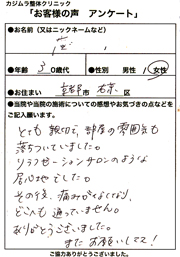 カジムラ整体クリニック
「お客様の声 アンケート」
●お名前(又はニックネームなど)
●年齢 30歳代 ●性別 男性・女性
●お住まい 京都市 右京区
●当院や当院の施術についての感想やお気づきの点などを
ご記入願います。
とても親切で、部屋の雰囲気も
落ちついていました。
リラクゼーションサロンのような
居心地でした。
その後、痛みがなくなり、
どこへも通っていません。
ありがとうございました。
またお願いします!
ご協力ありがとうございました。